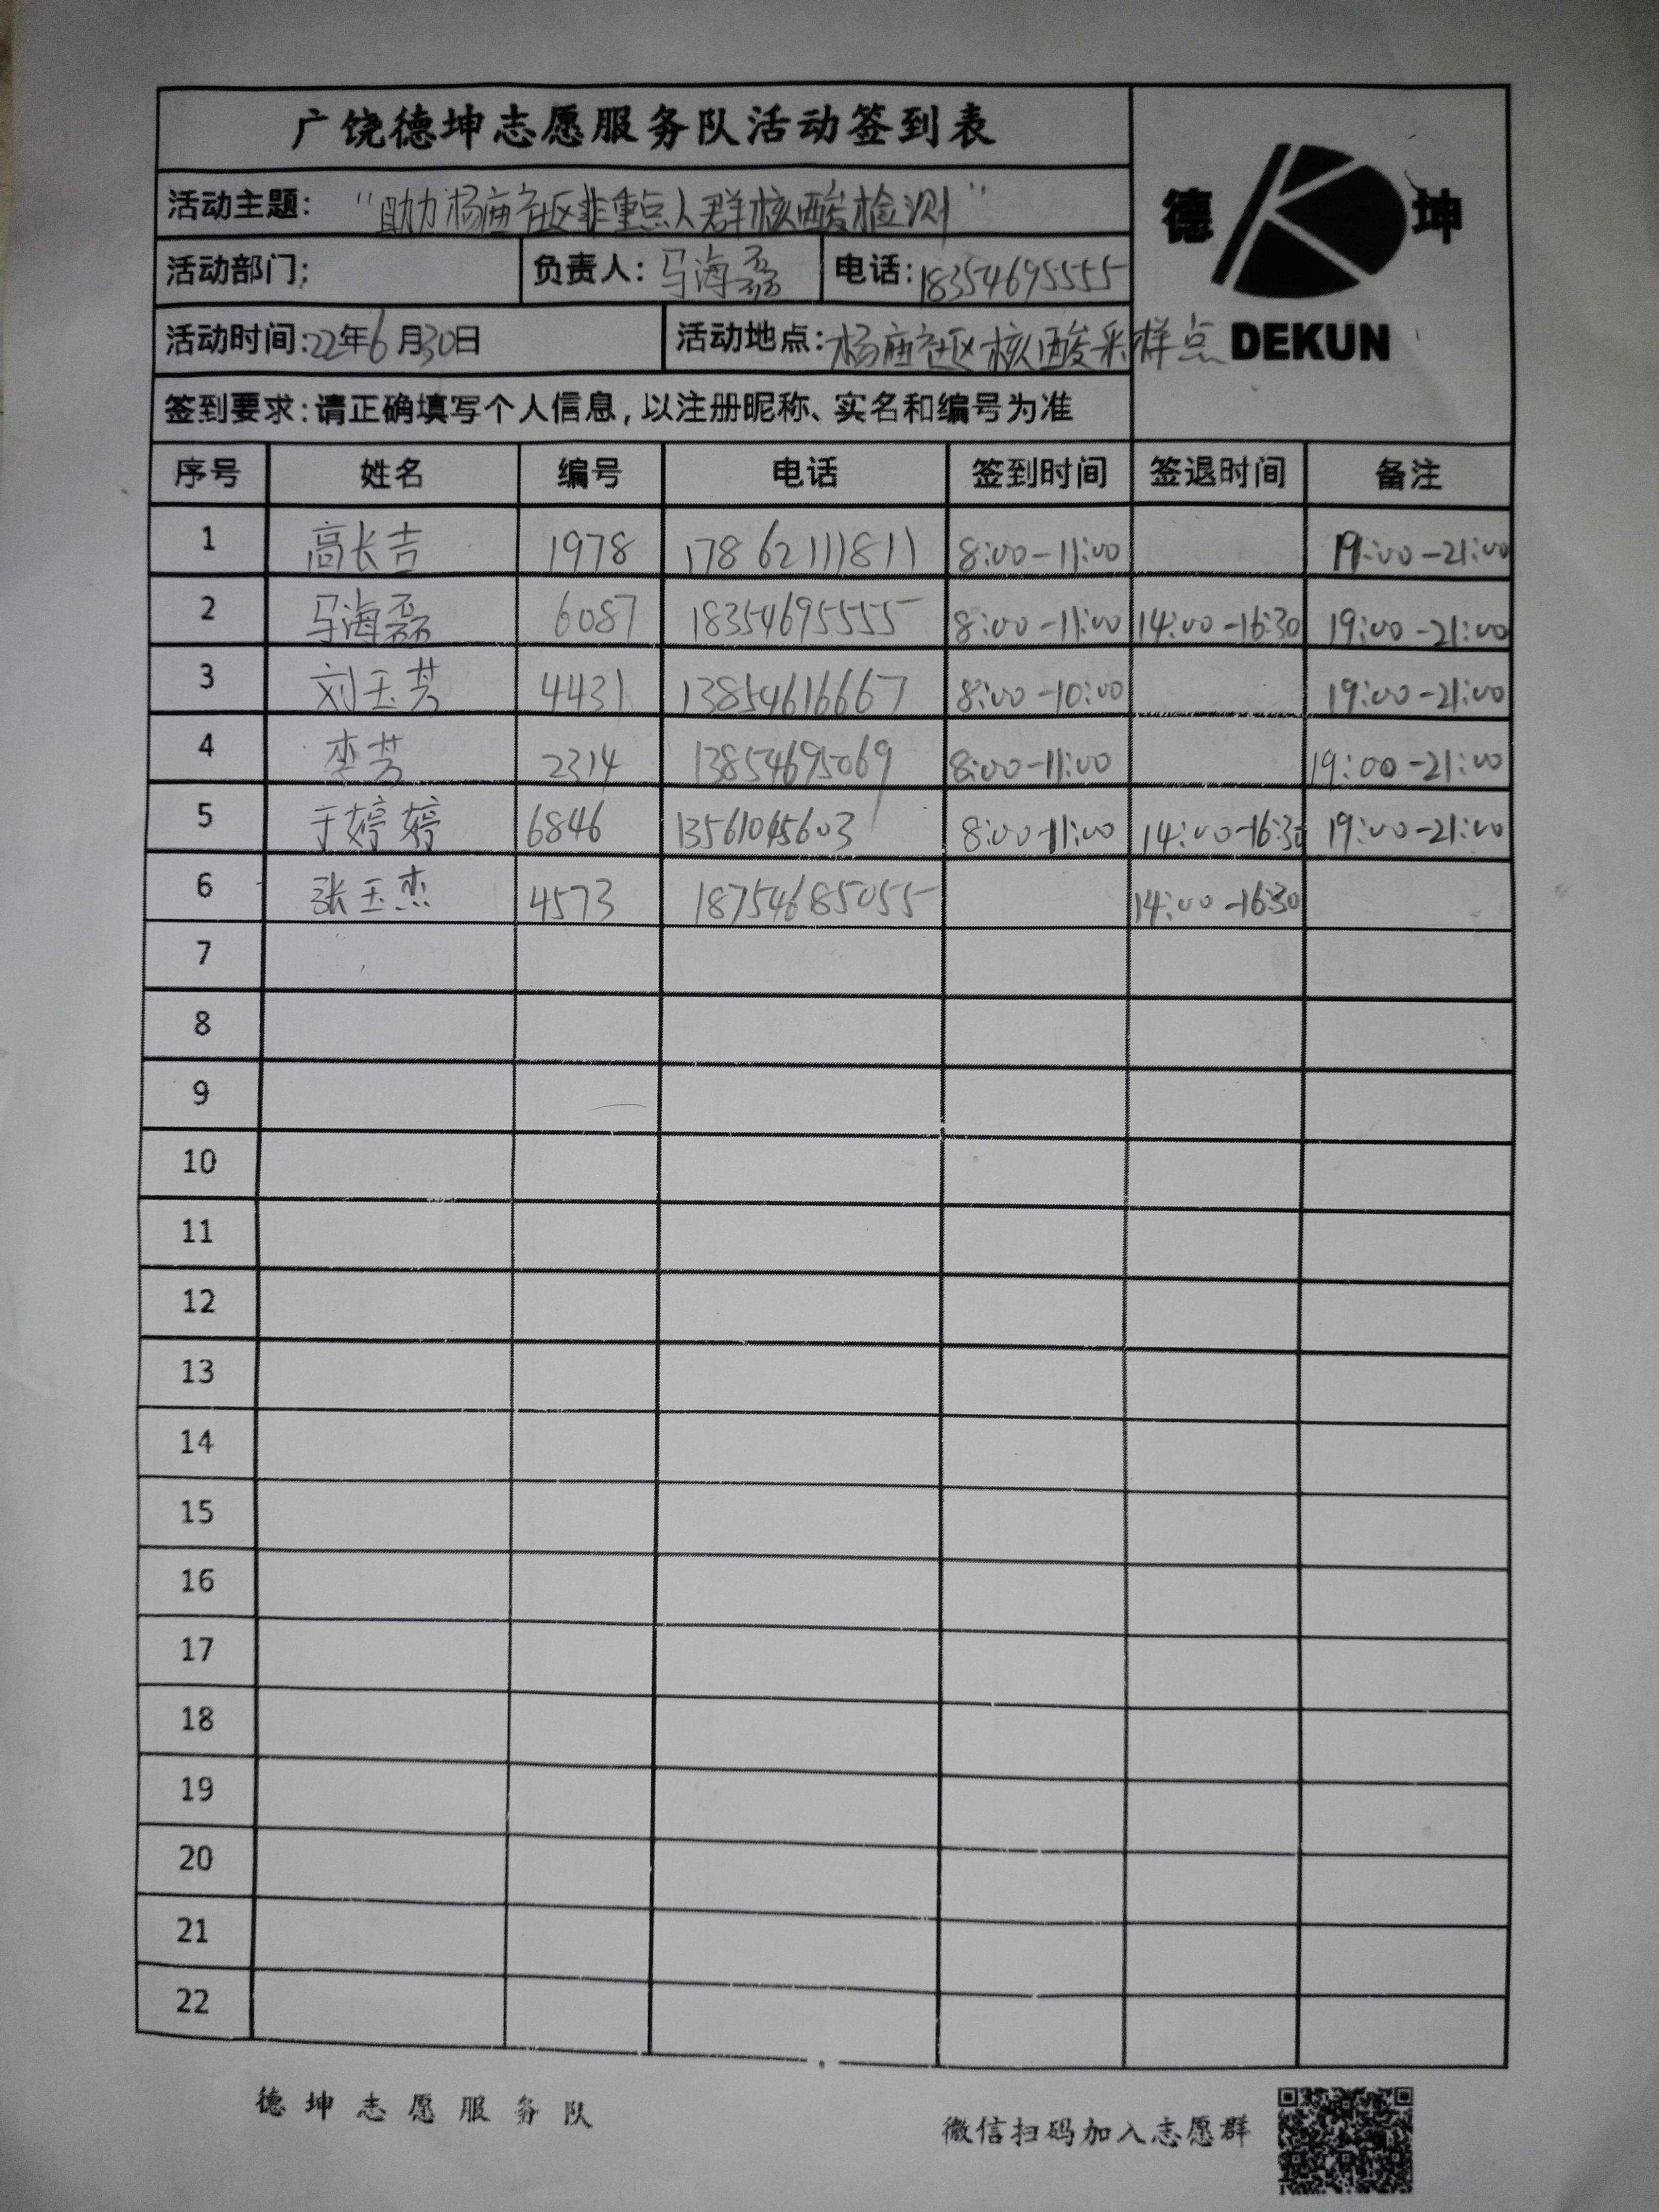 广饶德坤志愿服务队活动签到表
活动主题: "助力杨庙社区非重点人群核酸检测"
德 坤
活动部门: 负责人: 马海磊 电话: 18354695555
活动时间:22年6月30日 活动地点: 杨庙社区核酸采样点
DEKUN
签到要求:请正确填写个人信息,以注册昵称、实名和编号为准
序号 姓名 编号 电话 签到时间 签退时间 备注
1 高长吉 1978 17862111811 8:00-11:00 19:00-21:00
2 马海磊 6087 18354695555 8:00-11:00 14:00-16:30 19:00-21:00
3 刘玉芳 4431 13854616667 8:00-10:00 19:00-21:00
4 李芳 2314 13854695069 8:00-11:00 19:00-21:00
5 于婷婷 6846 13561045603 8:00-11:00 14:00-16:30 19:00-21:00
6 张玉杰 4573 18754685055 14:00-16:30
7
8
9
10
11
12
13
14
15
16
17
18
19
20
21
22
德坤志愿服务队
微信扫码加入志愿群